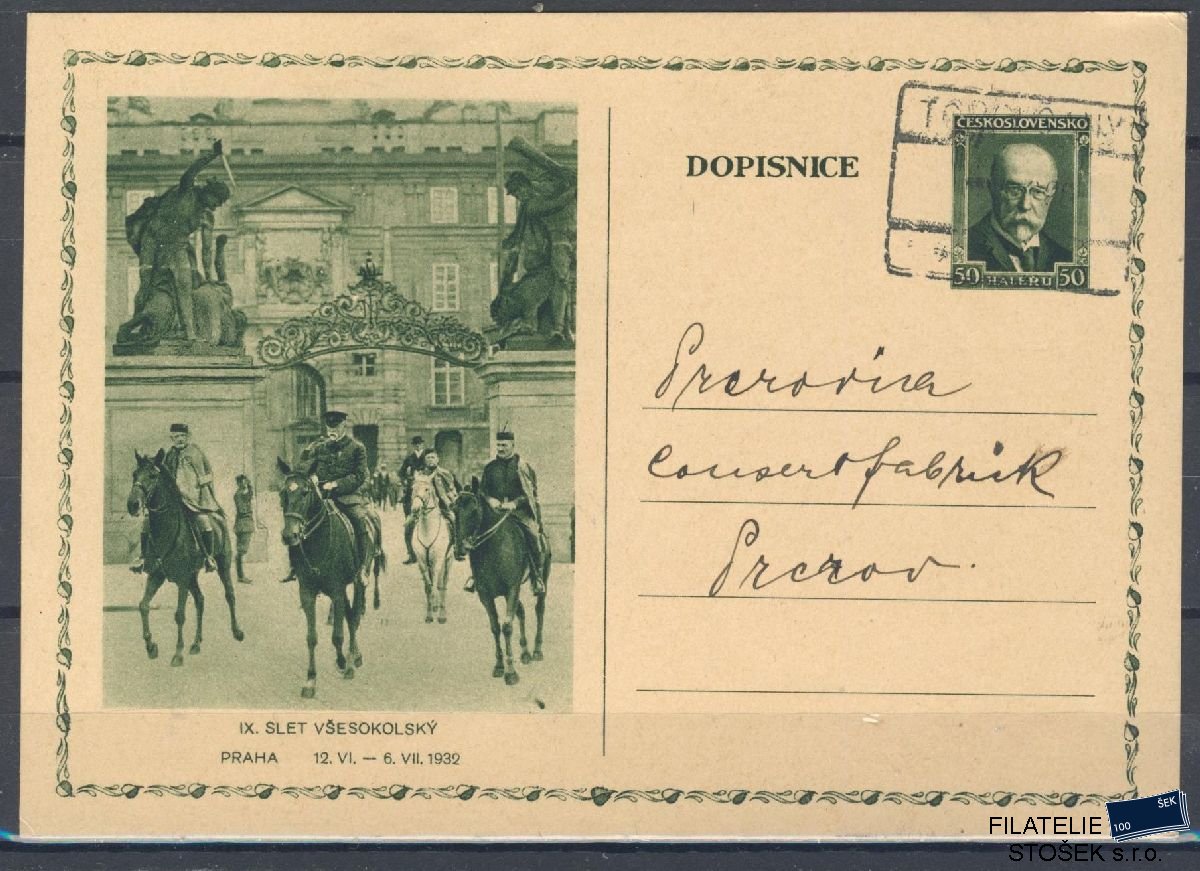 DOPISNICE
ČESKOSLOVENSKO
50 HALÉRŮ 50
Prerovia
Conservfabrik
Prerov.
IX. SLET VŠESOKOLSKÝ
PRAHA 12. VI. — 6. VII. 1932
FILATELIE
STOŠEK s.r.o.
100 ŠEK